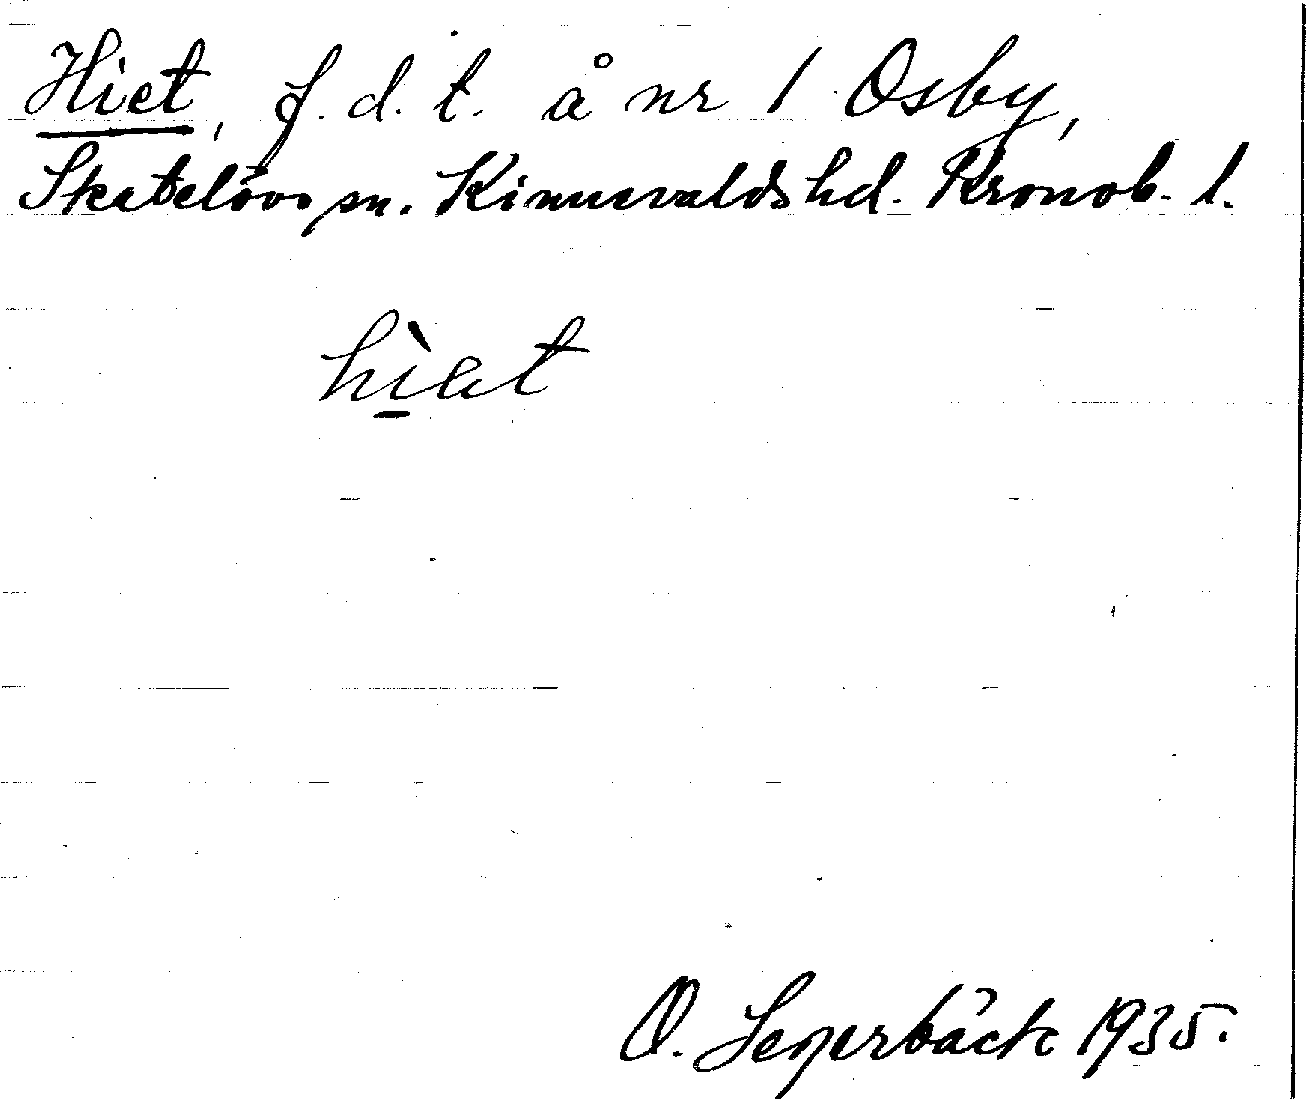 Hiet, f. d. t. å nr 1 Osby,
Skatelövs sn. Kinnevalds hd. Kronob. l.
hìet
O. Segerbäck 1935.